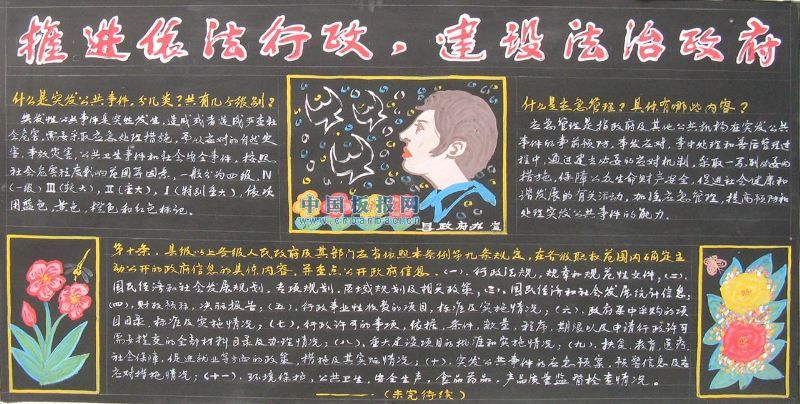 推进依法行政，建设法治政府
什么是突发公共事件，分几类？共有几个级别？
突发性公共事件是突然发生，造成或者造成严重社
会危害，需要采取应急处理措施，予以应对的自然灾
害、事故灾害、公共卫生事件和社会治安事件。按照
社会危害程度影响范围等因素，一般分为四级，Ⅳ
(一般)Ⅲ(较大)，Ⅱ(重大)，Ⅰ(特别重大)，依次
用蓝色、黄色、橙色和红色标记。
中国板报网
www.cnbanbao.cn
县政府办宣
什么是应急管理？具体有哪些内容？
应急管理是指政府及其他公共机构在突发公共
事件的事前预防，事发应对，事中处理和善后管理过
程中，通过建立必要的应对机制，采取一系列必要的
措施，保障公众生命财产安全，促进社会健康和
谐发展的有关活动。加强应急管理，提高预防和
处理突发公共事件的能力。
第十条，县级以上各级人民政府及其部门应当依照本条例第九条规定，在各自职权范围内确定主
动公开的政府信息的具体内容，并重点公开政府信息，(一)，行政法规，规章和规范性文件，(二)，
国民经济和社会发展规划，专项规划，区域规划及相关政策，(三)，国民经济和社会发展统计信息；
(四)，财政预算，决算报告；(五)，行政事业性收费的项目，标准及实施情况；(六)，政府集中采购的项
目目录，标准及实施情况；(七)，行政许可的事项，依据，条件，数量，程序，期限以及申请行政许可
需要提交的全部材料目录及办理情况；(八)，重大建设项目的批准和实施情况；(九)，扶贫，教育，医疗，
社会保障，促进就业等方面的政策，措施及其实施情况；(十)，突发公共事件的应急预案，预警信息及
应对措施情况；(十一)，环境保护，公共卫生，安全生产，食品药品，产品质量监督检查情况。
(未完待续)